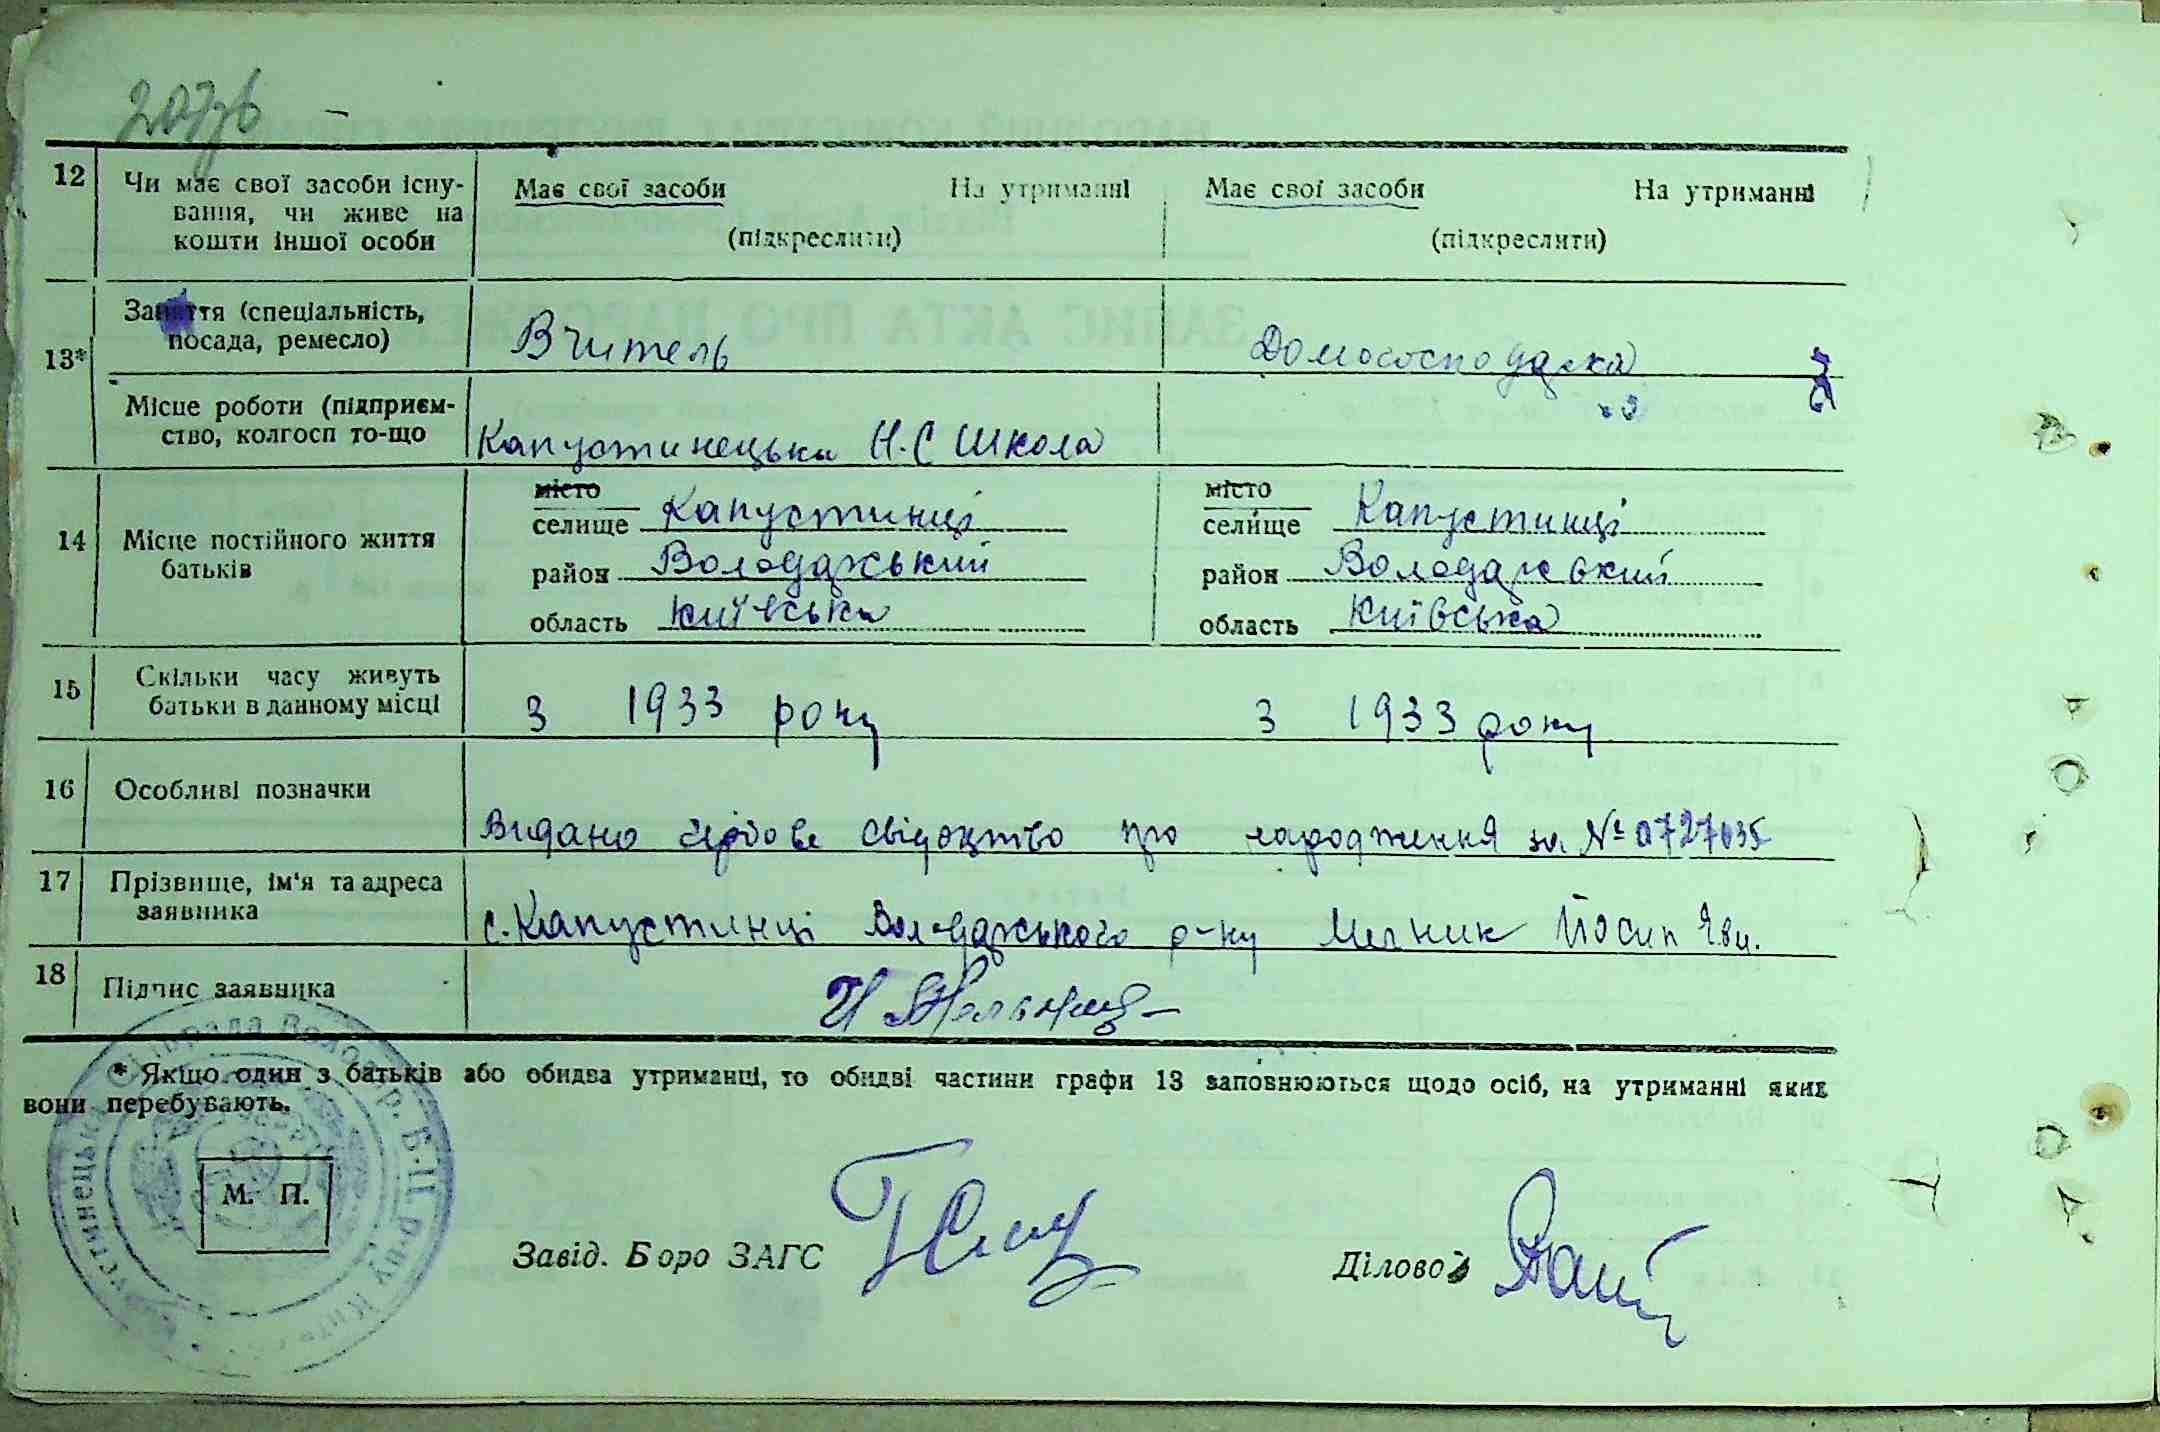 12 Чи має свої засоби існу- Має свої засоби На утриманні Має свої засоби На утриманні
вання, чи живе на
кошти іншої особи (підкреслити) (підкреслити)
13* Заняття (спеціальність,
посада, ремесло) Вчитель Домогосподарка
Місце роботи (підприєм-
ство, колгосп то-що Капустинецька Н.С Школа
місто місто
селище Капустинці селище Капустинці
14 Місце постійного життя
батьків район Володарський район Володарський
область Київська область Київська
15 Скільки часу живуть
батьки в данному місці З 1933 року З 1933 року
16 Особливі позначки
Видано гербове свідоцтво про народження за №
17 Прізвище, ім'я та адреса
заявника с. Капустинці Володарського р-ну Йосип
18 Підпис заявника
* Якщо один з батьків або обидва утриманці, то обидві частини графи 13 заповнюються щодо осіб, на утриманні яких
вони перебувають.
М. П.
Завід. Боро ЗАГС Діловод